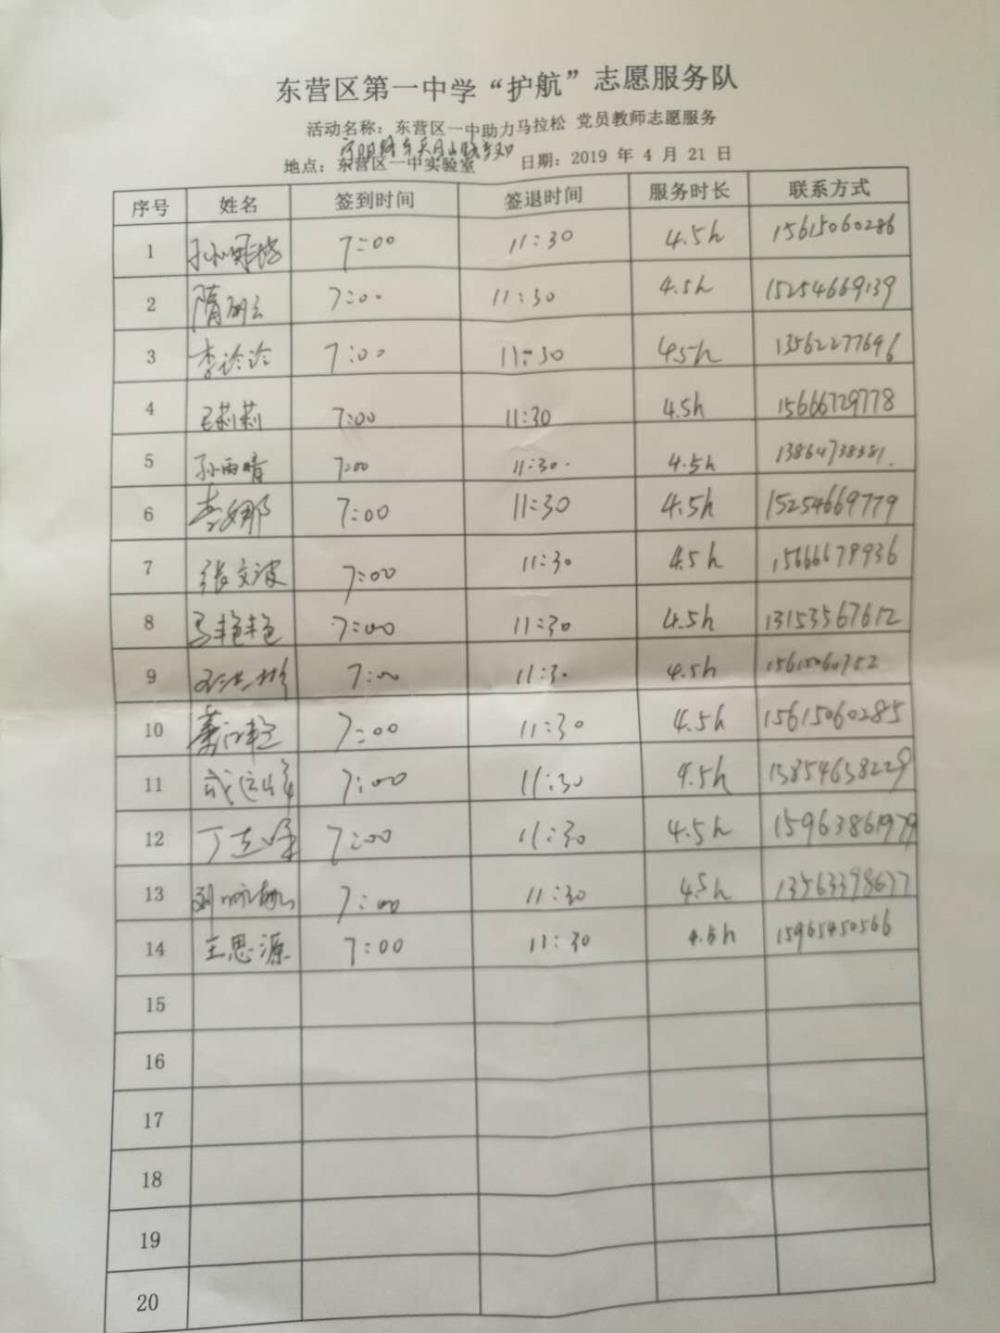 东营区第一中学“护航”志愿服务队
活动名称：东营区一中助力马拉松 党员教师志愿服务
地点：东营区一中实验室 日期：2019 年 4 月 21 日
序号 姓名 签到时间 签退时间 服务时长 联系方式
1 7:00 11:30 4.5h 15615060286
2 隋 7:00 11:30 4.5h 15254669139
3 李玲玲 7:00 11:30 4.5h 13562277696
4 王莉莉 7:00 11:30 4.5h 15666729778
5 孙雨晴 7:00 11:30 4.5h
6 李娜 7:00 11:30 4.5h 15254669779
7 张文波 7:00 11:30 4.5h 15666678936
8 马艳艳 7:00 11:30 4.5h 13153567612
9 7:00 11:30 4.5h
10 7:00 11:30 4.5h 15615060285
11 7:00 11:30 4.5h 13854638229
12 丁志峰 7:00 11:30 4.5h 15963861979
13 刘 7:00 11:30 4.5h 13563398677
14 王思源 7:00 11:30 4.5h 15965450566
15
16
17
18
19
20